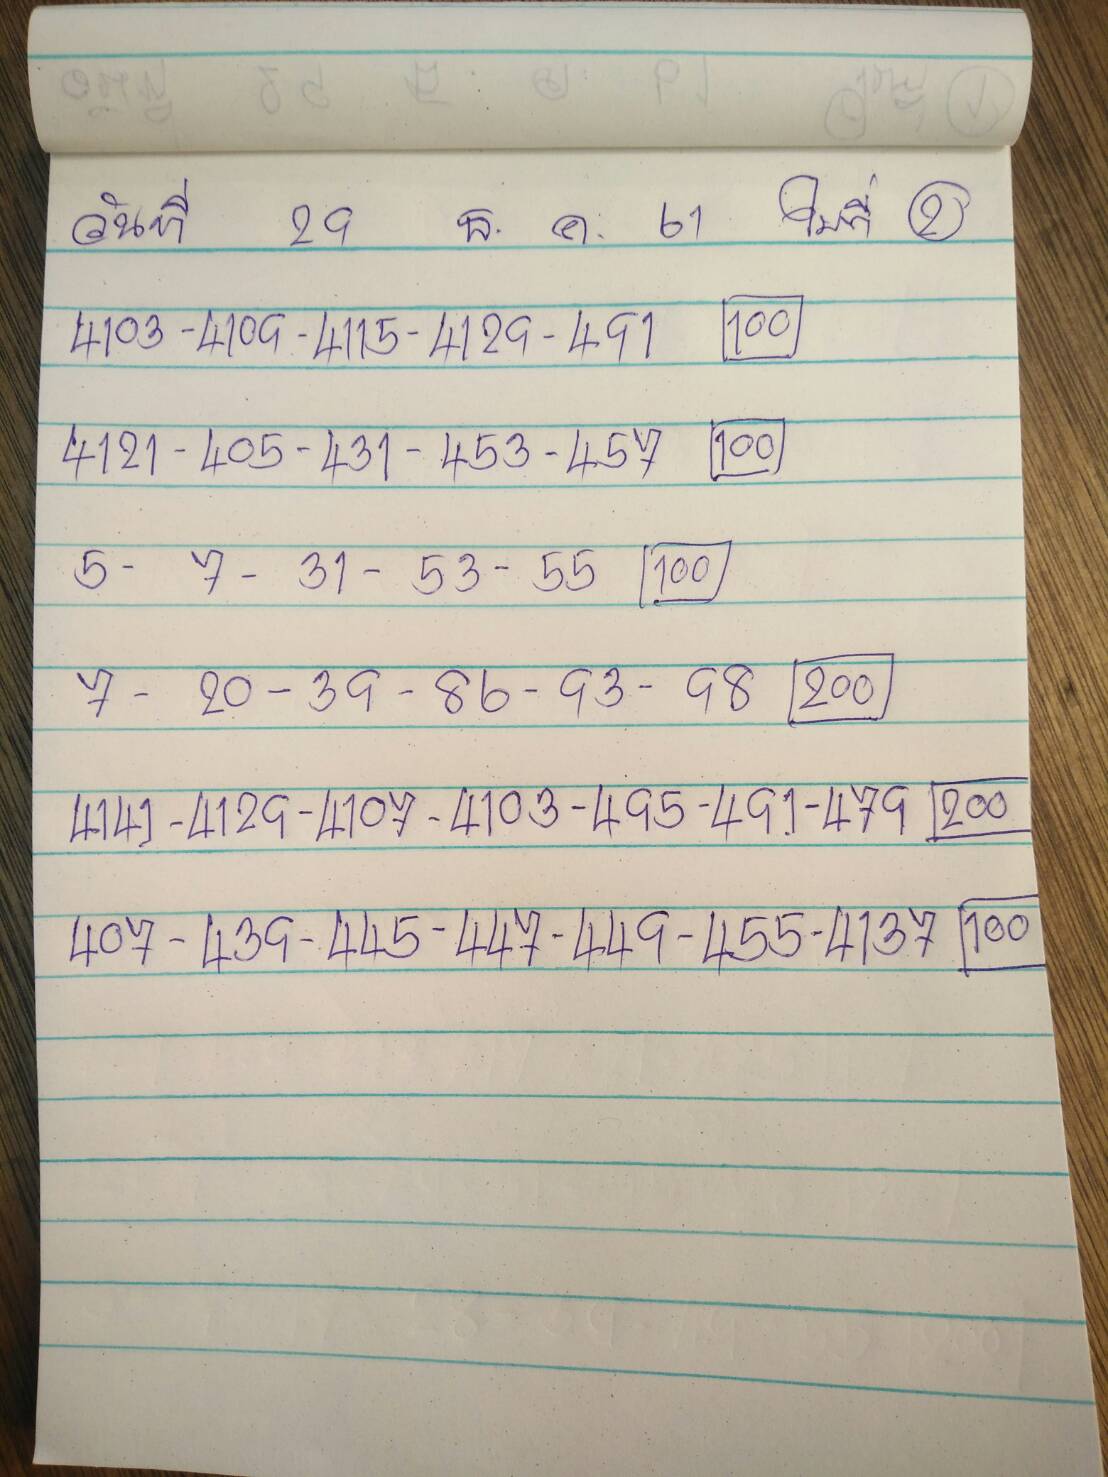 วันที่ 29 ธ.ค. 61 ใบที่ 2
4103-4109-4115-4129-491 100
4121-405-431-453-457 100
5-7-31-53-55 100
7-20-39-86-93-98 200
4141-4129-4107-4103-495-491-479 200
407-439-445-447-449-455-4137 100